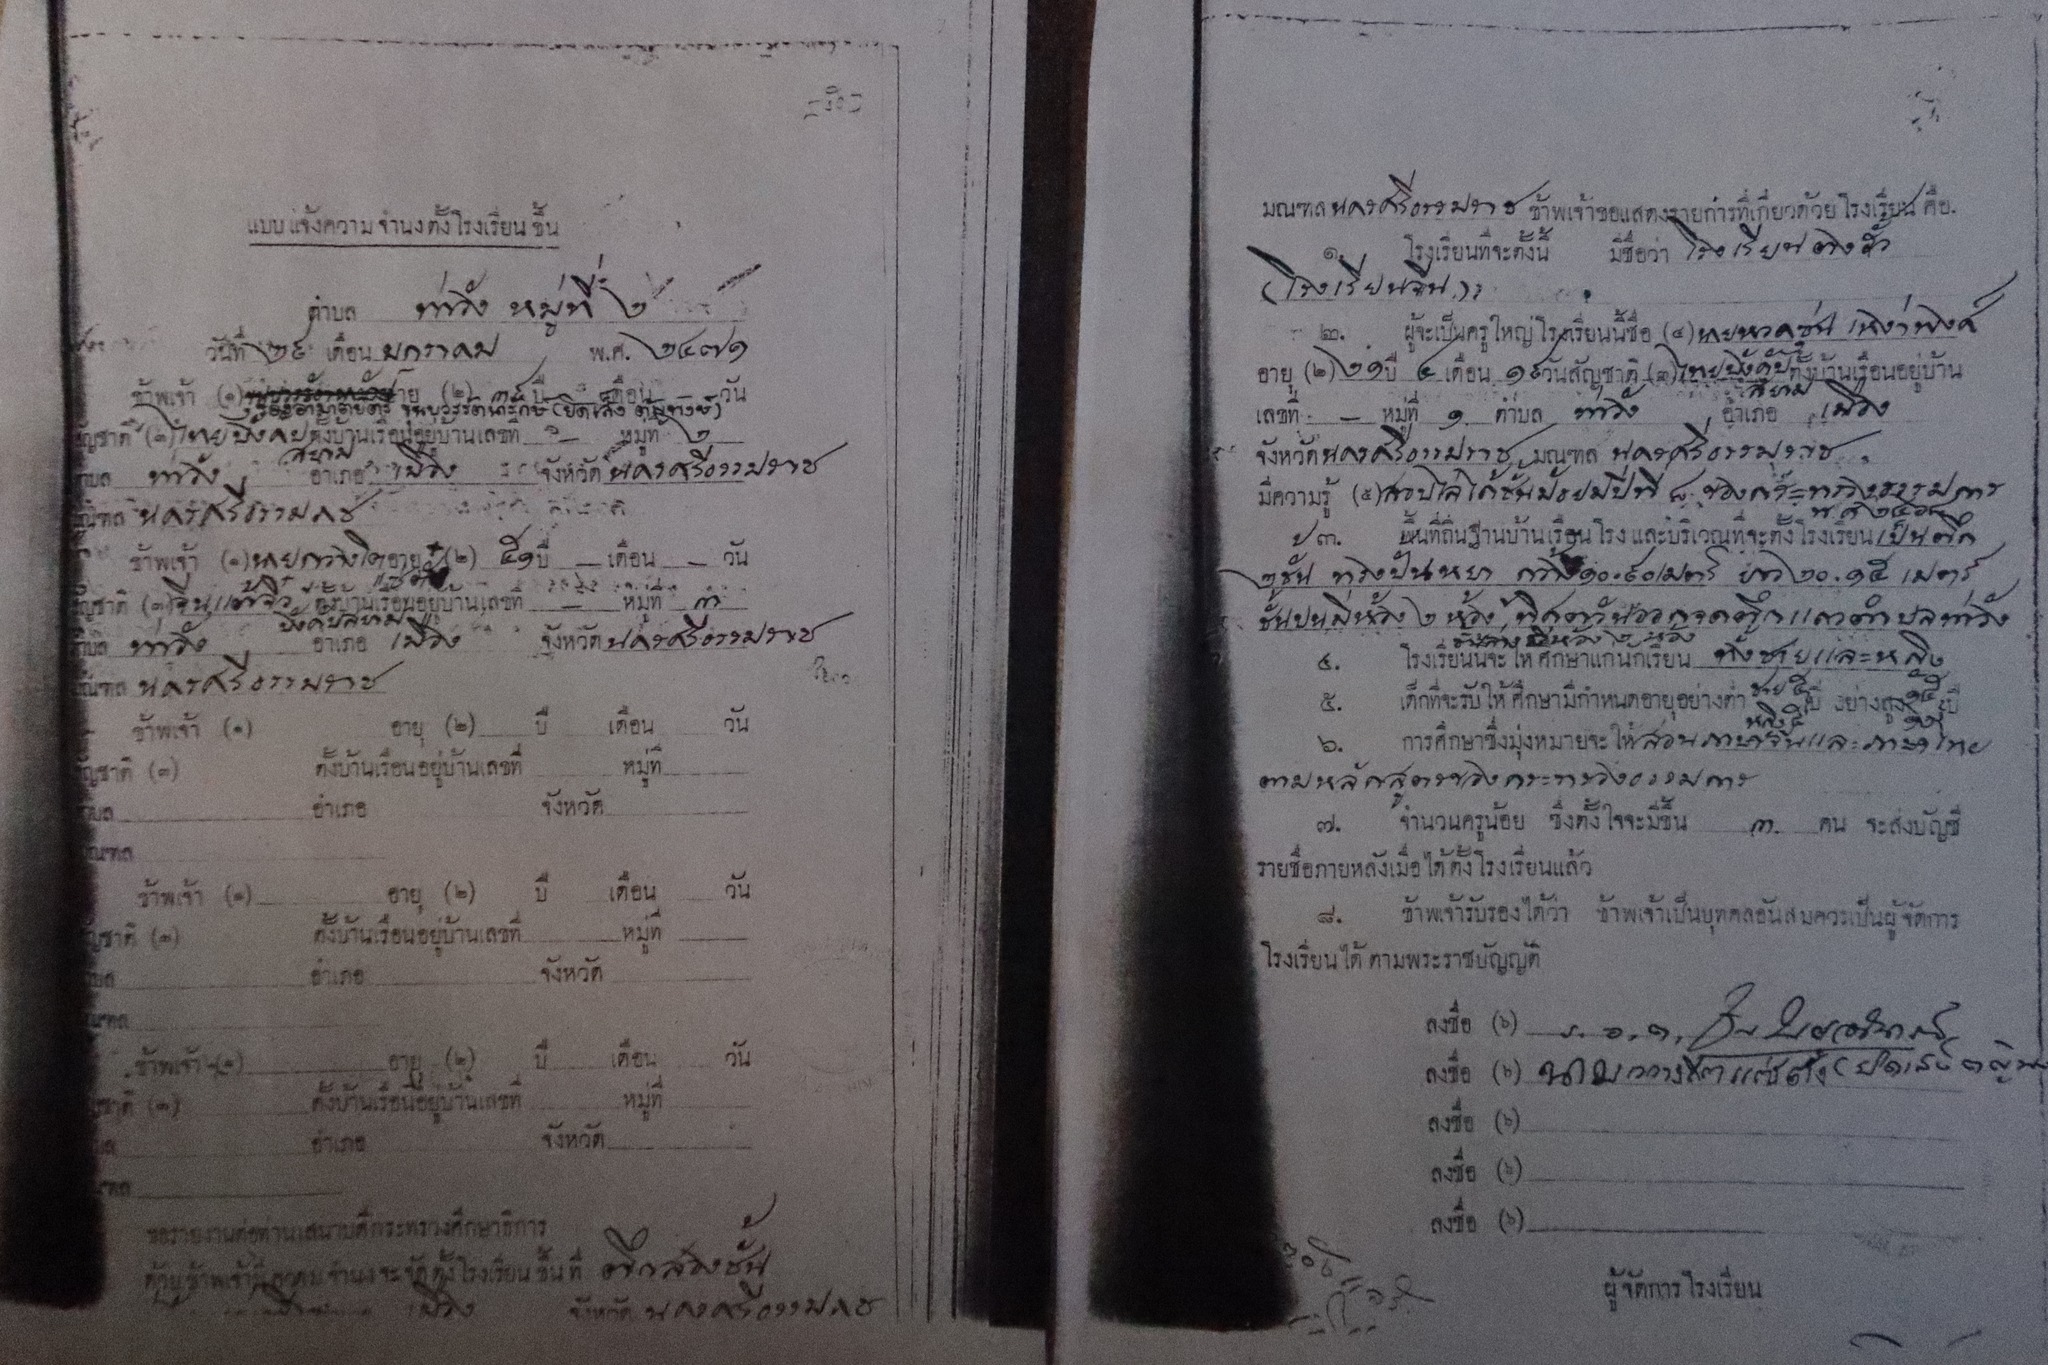 แบบแจ้งความจำนงตั้งโรงเรียนขึ้น
ตำบล ท่าวัง หมู่ที่ ๒
วันที่ ๒๙ เดือน มกราคม พ.ศ. ๒๔๗๑
ข้าพเจ้า (๑) อายุ (๒) ๓๙ ปี เดือน วัน
รองอำมาตย์ตรี ขุนบวรรัตนารักษ์
สัญชาติ (๓) ไทยบังคับ ตั้งบ้านเรือนอยู่บ้านเลขที่ – หมู่ที่ ๒
สยาม
ตำบล ท่าวัง อำเภอ เมือง จังหวัด นครศรีธรรมราช
มณฑล นครศรีธรรมราช
ข้าพเจ้า (๑) อายุ (๒) ๕๑ ปี – เดือน – วัน
สัญชาติ (๓) จีนแต้จิ๋ว ตั้งบ้านเรือนอยู่บ้านเลขที่ – หมู่ที่ ๓
บังคับสยาม
ตำบล ท่าวัง อำเภอ เมือง จังหวัด นครศรีธรรมราช
มณฑล นครศรีธรรมราช
ข้าพเจ้า (๑) อายุ (๒) ปี เดือน วัน
สัญชาติ (๓) ตั้งบ้านเรือนอยู่บ้านเลขที่ หมู่ที่
ตำบล อำเภอ จังหวัด
มณฑล
ข้าพเจ้า (๑) อายุ (๒) ปี เดือน วัน
สัญชาติ (๓) ตั้งบ้านเรือนอยู่บ้านเลขที่ หมู่ที่
ตำบล อำเภอ จังหวัด
มณฑล
ข้าพเจ้า (๑) อายุ (๒) ปี เดือน วัน
สัญชาติ (๓) ตั้งบ้านเรือนอยู่บ้านเลขที่ หมู่ที่
ตำบล อำเภอ จังหวัด
มณฑล
ขอรายงานต่อท่านเสนาบดีกระทรวงศึกษาธิการ
ด้วยข้าพเจ้ามีความจำนงจะจัดตั้งโรงเรียนขึ้นที่ ตึกสองชั้น
เมือง จังหวัด นครศรีธรรมราช
มณฑล นครศรีธรรมราช ข้าพเจ้าขอแสดงรายการที่เกี่ยวด้วยโรงเรียน คือ.
๑. โรงเรียนที่จะตั้งนี้ มีชื่อว่า โรงเรียนตงฮั้ว
(โรงเรียนจีน)
๒. ผู้จะเป็นครูใหญ่โรงเรียนนี้ชื่อ (๔)
อายุ (๒) ๒๑ ปี ๔ เดือน ๑๙ วัน สัญชาติ (๓) ไทยบังคับ ตั้งบ้านเรือนอยู่บ้าน
สยาม
เลขที่ – หมู่ที่ ๑ ตำบล ท่าวัง อำเภอ เมือง
จังหวัด นครศรีธรรมราช มณฑล นครศรีธรรมราช
มีความรู้ (๕) สอบไล่ได้ชั้นมัธยมปีที่ ๘ ของกระทรวงธรรมการ
๓. พื้นที่ถิ่นฐานบ้านเรือนโรง และบริเวณที่จะตั้งโรงเรียน เป็นตึก
๒ ชั้น ทรงปั้นหยา กว้าง ๑๐.๘๐ เมตร์ ยาว ๒๐.๑๕ เมตร์
ชั้นบนมีห้อง ๒ ห้อง ทิศตะวันออกจดตึกแถวตำบลท่าวัง
ชั้นล่างมีห้อง ๒ ห้อง
๔. โรงเรียนนี้จะให้ศึกษาแก่นักเรียน ทั้งชายและหญิง
๕. เด็กที่จะรับให้ศึกษามีกำหนดอายุอย่างต่ำ ชาย ๕ ปี อย่างสูง ๑๕ ปี
๖. การศึกษาซึ่งมุ่งหมายจะให้ สอนภาษาจีนและภาษาไทย
ตามหลักสูตรของกระทรวงธรรมการ
๗. จำนวนครูน้อย ซึ่งตั้งใจจะมีขึ้น ๓ คน จะส่งบัญชี
รายชื่อภายหลังเมื่อได้ตั้งโรงเรียนแล้ว
๘. ข้าพเจ้ารับรองได้ว่า ข้าพเจ้าเป็นบุคคลอันสมควรเป็นผู้จัดการ
โรงเรียนได้ ตามพระราชบัญญัติ
ลงชื่อ (๖) ร.อ.ต.
ลงชื่อ (๖)
ลงชื่อ (๖)
ลงชื่อ (๖)
ลงชื่อ (๖)
ผู้จัดการโรงเรียน